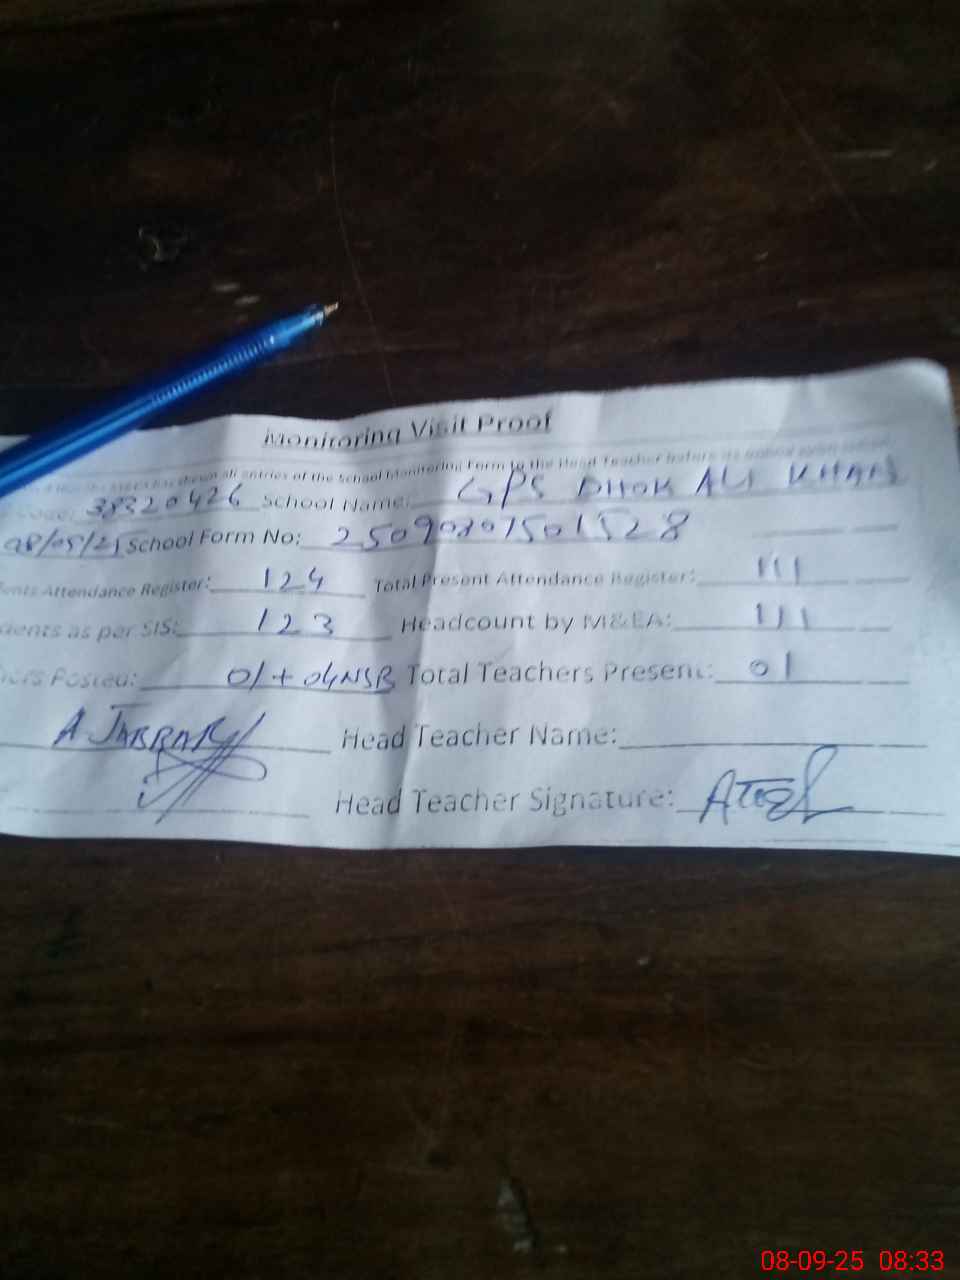 Monitoring Visit Proof
shown all entries of the School Monitoring Form to the Head Teacher before
38320426 School Name: GPS DHOK ALI KHAN
08/09/25 School Form No: 25090807501528
Attendance Register: 124 Total Present Attendance Register: 111
as per SIS: 123 Headcount by M&EA: 111
Posted: 01+04NSB Total Teachers Present: 01
A JABBAR Head Teacher Name:
Head Teacher Signature:
08-09-25 08:33